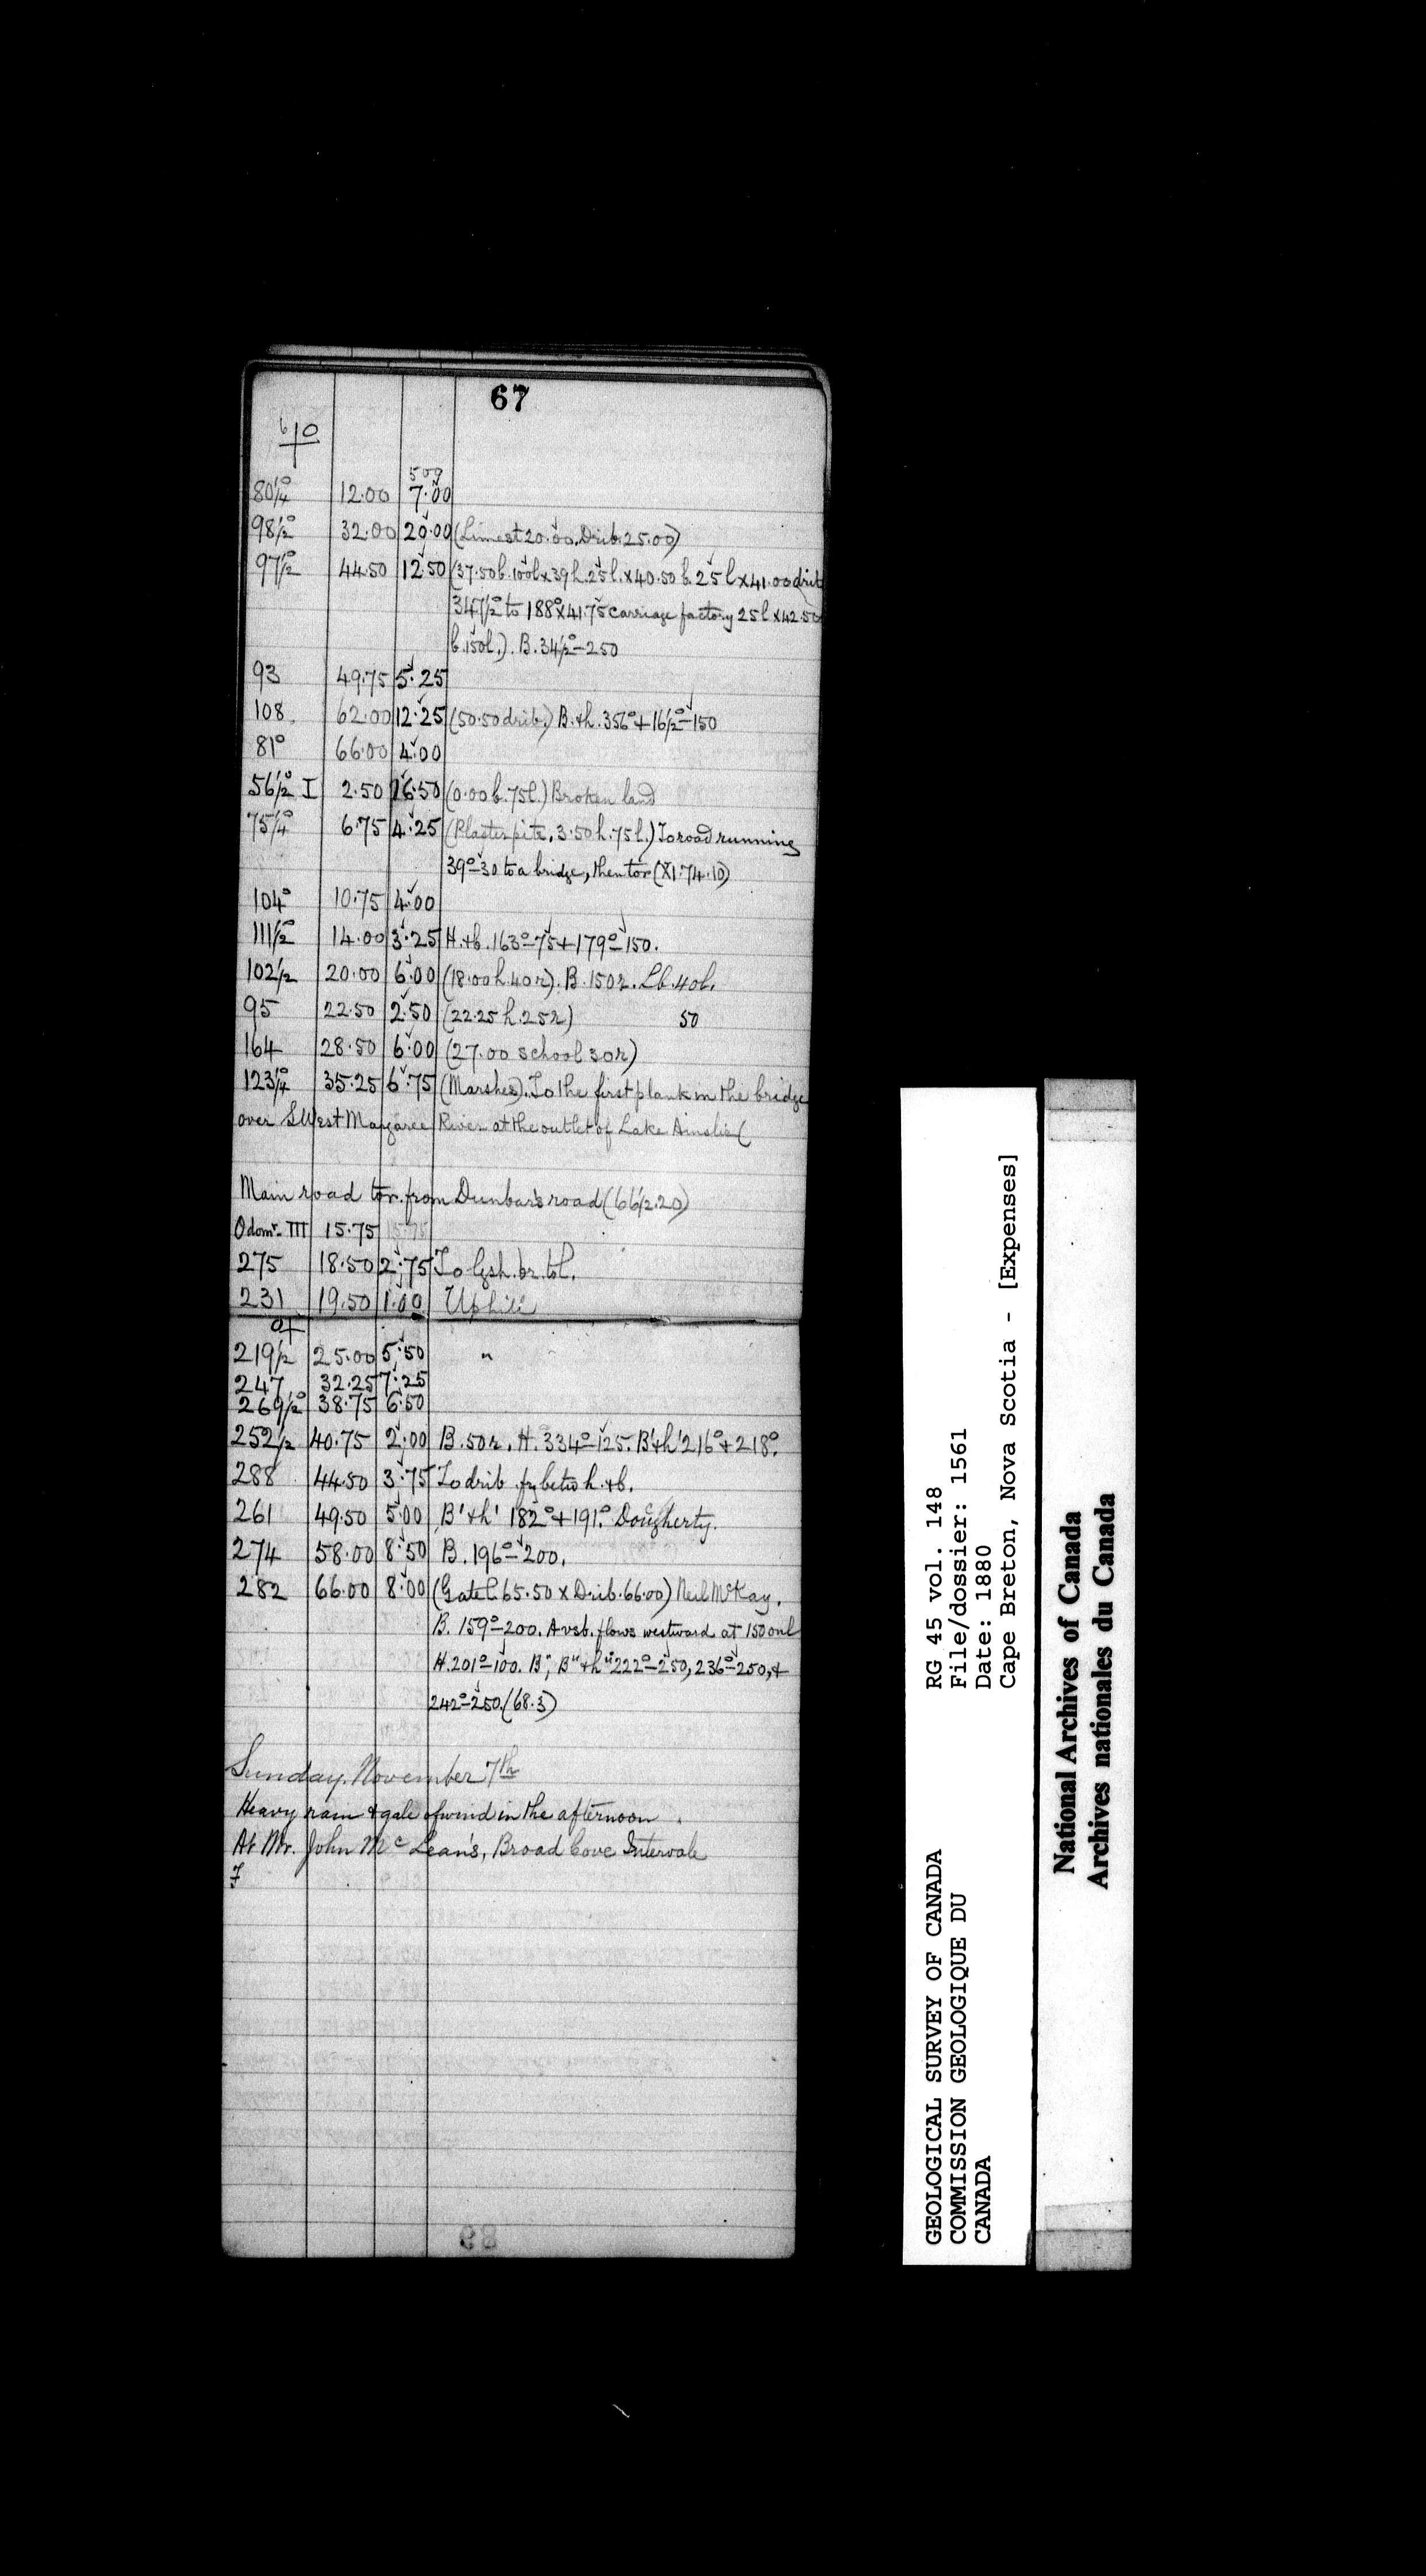 67
610
509
80¼° 12.00 7.00
98½° 32.00 20.00 (Limest 20.00. Drib. 25.00)
97½° 44.50 12.50 (37.50 b. 100l x 39 h. 25 l. x 40.50 b. 25 l x 41.00 drib
347½° to 188° x 41.75 carriage factory 25 l x 42.50
b. 150l.). B. 34½° - 250
93 49.75 5.25
108 62.00 12.25 (50.50 drib.) B. + h. 356° + 16½° - 150
81° 66.00 4.00
56½° I 2.50 16.50 (0.00 b. 75 l.) Broken land
75¼° 6.75 4.25 (Plaster pits. 3.50 h. 75 l.) To road running
39° - 30 to a bridge, then tor (XI. 74.10)
104° 10.75 4.00
111½° 14.00 3.25 H. + b. 163° - 75 + 179° - 150.
102½ 20.00 6.00 (18.00 h. 40 r). B. 150 r. Lb. 40l.
95 22.50 2.50 (22.25 h. 25 r) 50
164 28.50 6.00 (27.00 school 30 r)
123¼° 35.25 6.75 (Marshes). To the first plank in the bridge
over S West Margaree River at the outlet of Lake Ainslie (
Main road tor. from Dunbar's road (66½.20)
Odomr. III 15.75 15.75
275 18.50 2.75 To br. tol.
231 19.50 1.00 Uphill
of
219½ 25.00 5.50 "
247 32.25 7.25
269½° 38.75 6.50
252½ 40.75 2.00 B. 50 r. H. 334° - 125. B' + h' 216° + 218°.
288 44.50 3.75 To drib. betw h. + b.
261 49.50 5.00 B' + h' 182° + 191°. Dougherty.
274 58.00 8.50 B. 196° - 200.
282 66.00 8.00 (Gate l. 65.50 x Drib. 66.00) Neil McKay.
B. 159° - 200. A vsb. flows westward at 150 on l
H. 201° - 100. B", B" + h" 222° - 250, 236° - 250, +
242° - 250. (68.3)
Sunday. November 7th
Heavy rain & gale of wind in the afternoon.
At Mr. John McLean's, Broad Cove Intervale
7
89
GEOLOGICAL SURVEY OF CANADA
COMMISSION GEOLOGIQUE DU
CANADA
RG 45 vol. 148
File/dossier: 1561
Date: 1880
Cape Breton, Nova Scotia - [Expenses]
National Archives of Canada
Archives nationales du Canada